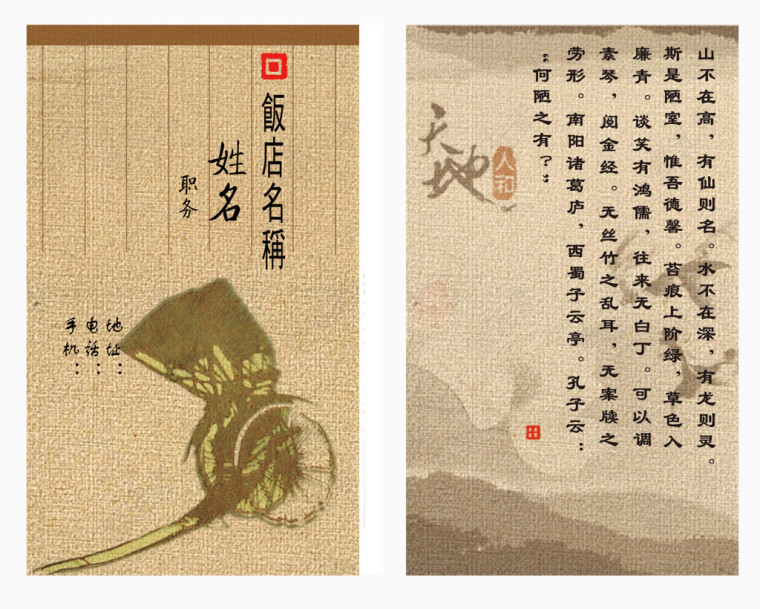 飯店名稱
姓名
职务
地址：
电话：
手机：
山不在高，有仙则名。水不在深，有龙则灵。
斯是陋室，惟吾德馨。苔痕上阶绿，草色入
廉青。谈笑有鸿儒，往来无白丁。可以调
素琴，阅金经。无丝竹之乱耳，无案牍之
劳形。南阳诸葛庐，西蜀子云亭。孔子云：
“何陋之有？”
天地
人和